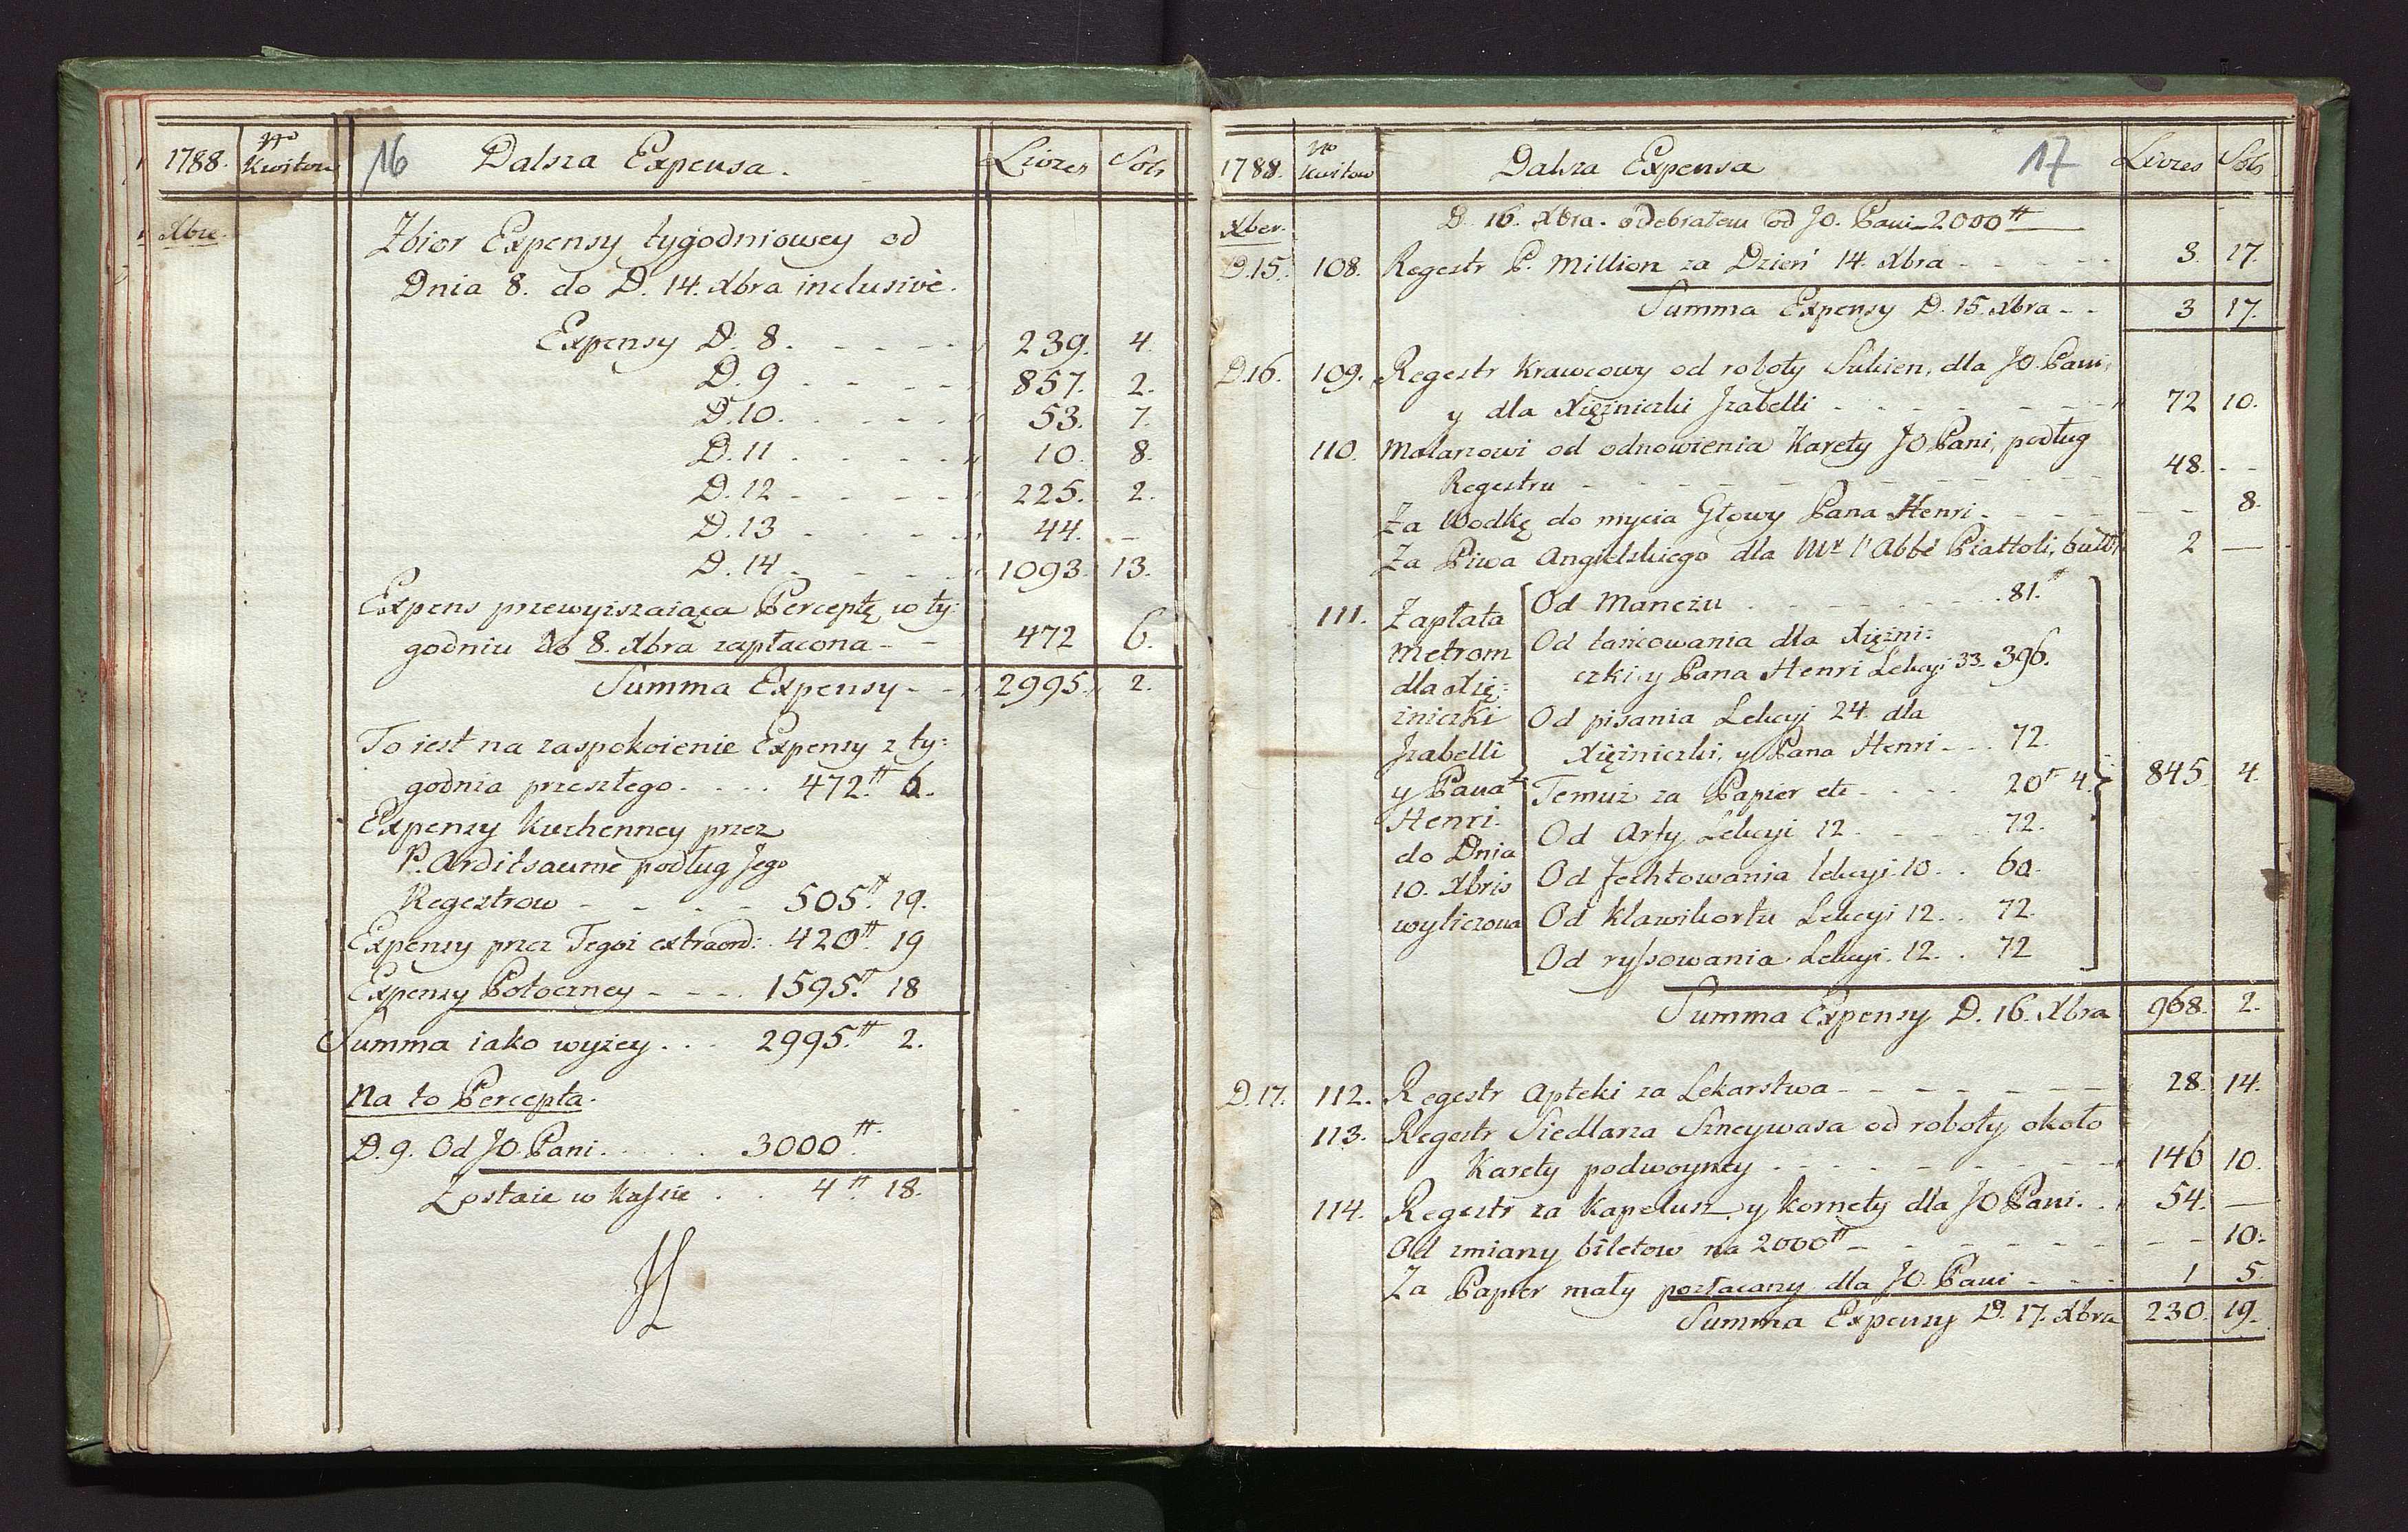 1788. No Kwitow 16 Dalsza Expensa. Livres Sols
Xbre.
Zbior Expensy tygodniowey od
Dnia 8. do D. 14. Xbra inclusivè.
Expensy D. 8. - - - - 239. 4.
D. 9 - - - - 857. 2.
D. 10. - - - - 53. 7.
D. 11 - - - - 10. 8.
D. 12 - - - - 225. 2.
D. 13 - - - - 44. -
D. 14 - - - - 1093. 13.
Expens przewyiszaiąca Perceptę w ty:
godniu do 8. Xbra zapłacona - - 472 6.
Summa Expensy - - 2995. 2.
To iest na zaspokoienie Expensy z ty:
godnia przeszłego. . . . 472.tt 6.
Expensy Kuchenney przez
P. Arditsaume podług Jego
Regestrow - - - - 505.tt 19.
Expensy przez Tegoż extraord: 420tt. 19
Expensy Potoczney - - - - 1595.tt 18
Summa iako wyżey . . . 2995.tt 2.
Na to Percepta.
D. 9. Od JO. Pani. . . . . . 3000tt.
Zostaie w kassie . . . 4tt. 18.
1788. No Kwitow Dalsza Expensa 17 Livres Sols
Xber. D. 16. Xbra. odebrałem od JO. Pani - 2000tt
D. 15. 108. Regestr P. Million za Dzień 14. Xbra - - - - 3. 17.
Summa Expensy D. 15. Xbra - - 3 17.
D. 16. 109. Regestr Krawcowy od roboty Sukien, dla JO. Pani,
y dla Xiężniczki Izabelli - - - - - - 72 10.
110. Malarzowi od odnowienia Karety JO Pani, podług
Regestru - - - - - - - - 48. - -
Za Wodkę do mycia Głowy Pana Henri - - - - - - 8.
Za Piwa Angielskiego dla Mr l'Abbé Piattoli, 2 —
111. Zapłata
Metrom
dla Xię:
żniczki
Izabelli
y Pana
Henri.
do Dnia
10. Xbris
wyliczona
Od Maneżu . - - - - - - . 81.tt
Od tańcowania dla Xiężni:
czki y Pana Henri Lekcyi 33. 396.
Od pisania Lekcyi 24. dla
Xiężniczki, y Pana Henri - - . 72.
Temuż za Papier etc - - . . . 20tt 4.
Od Arfy Lekcyi 12 - - - - 72.
Od fechtowania lekcyi 10 . . 60.
Od Klawikortu Lekcyi 12 . . 72.
Od ryssowania Lekcyi. 12. . 72
845. 4.
Summa Expensy D. 16. Xbra 968. 2.
D. 17. 112. Regestr Apteki za Lekarstwa - - - - - - - 28. 14.
113. Regestr Siedlarza Szneywasa od roboty około
Karety podwoyney . - - - - - - - 146 10.
114. Regestr za Kapelusz y Kornety dla JO Pani. . 54. —
Od zmiany biletow na 2000tt - - - - - - - - 10.
Za Papier mały pozłacany dla JO. Pani - - - 1 5.
Summa Expensy D. 17. Xbra 230. 19.